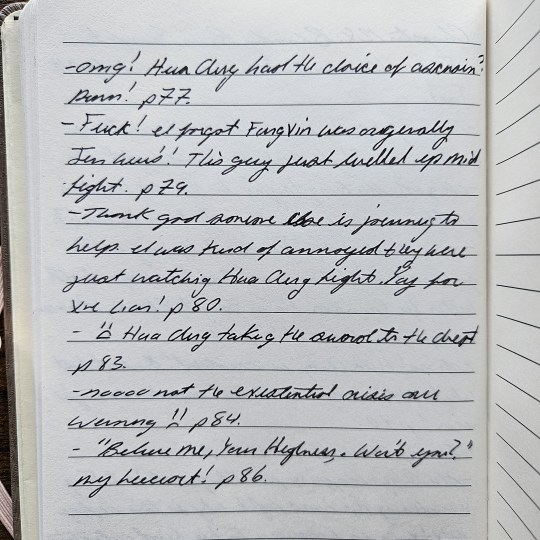 -omg! Hua Cheng had the choice of ascension?
Damn! p77.
- Fuck! I forgot Fang Xin was originally
Jun Wu's! This guy just levelled up mid
fight. p79.
- Thank god someone else is joining to
help. I was kind of annoyed they were
just watching Hua Cheng fight. Yay for
Xie Lian! p80.
- Hua Cheng taking the sword to the chest
p83.
-noooo not the existential crisis
p84.
- "Believe me, Your Highness. Won't you?"
my heeeart! p86.